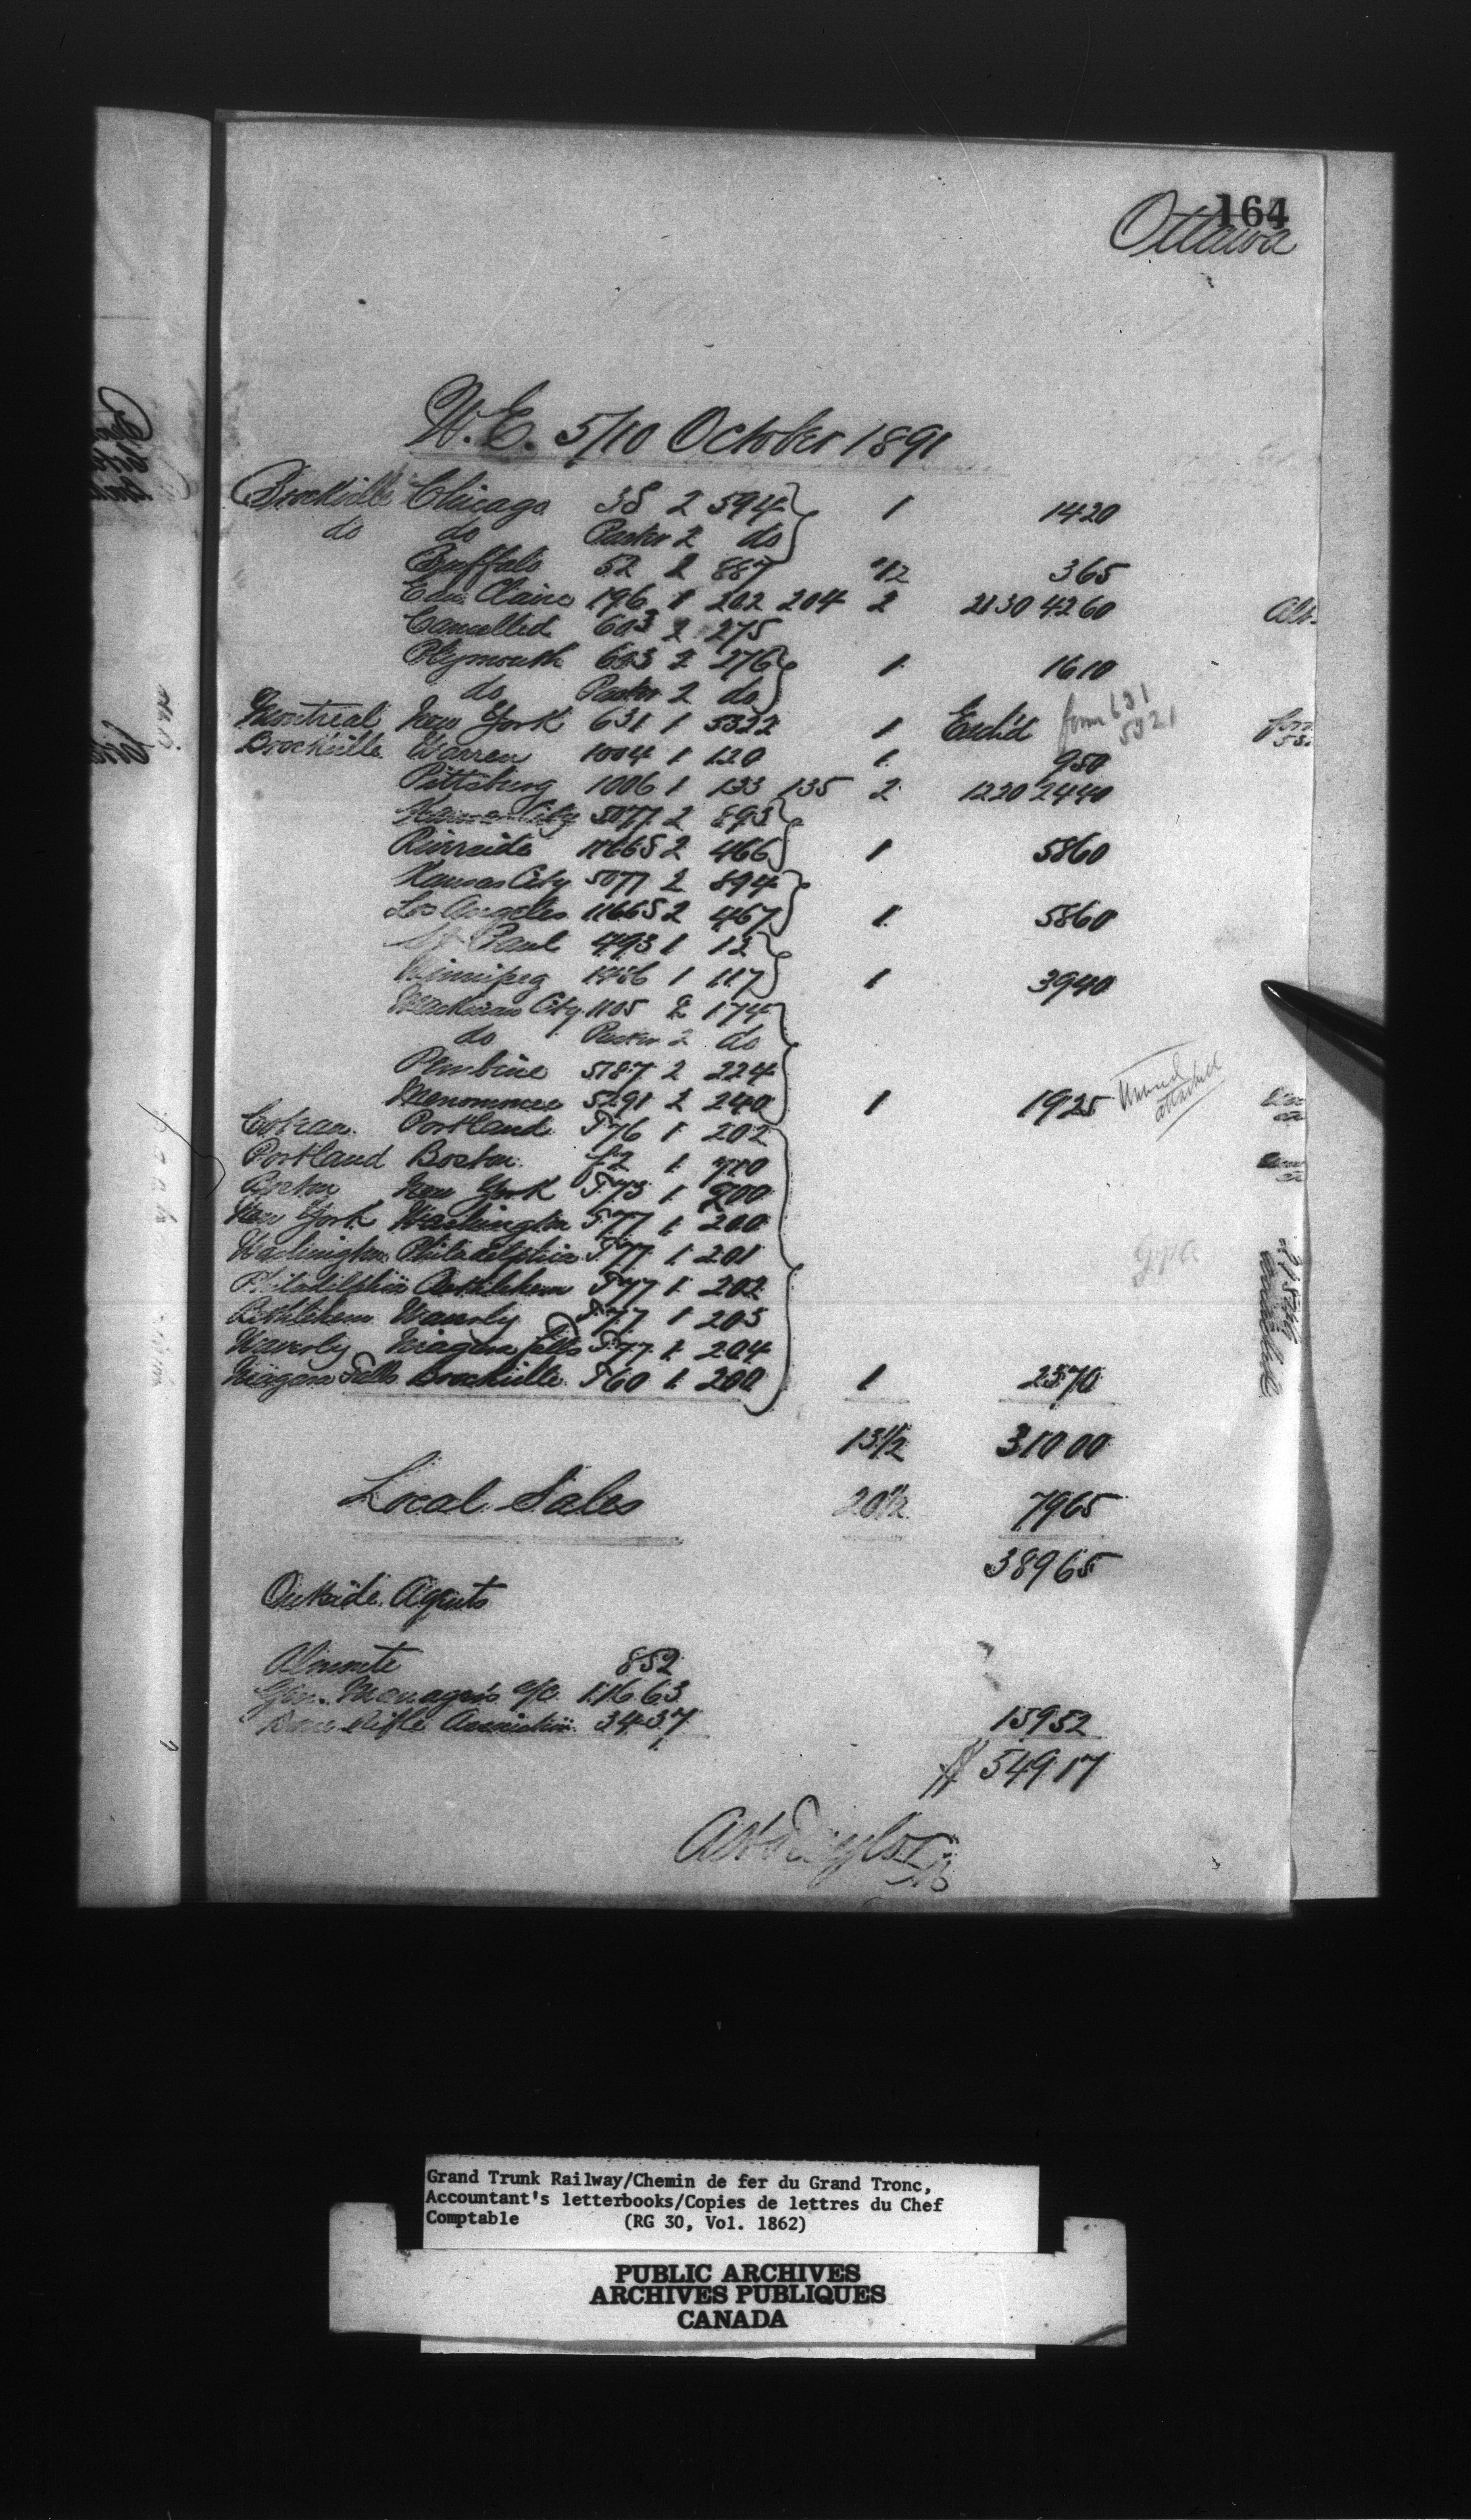 164
Ottawa
W.E. 5/10 October 1891
Brockville Chicago 38 2 594 1 14 20
do do Paster 2 do
Buffalo 52 2 887 1/2 3 65
Eau Claire 196 1 202 204 2 21 30 42 60
Cancelled 603 2 275
Plymouth 603 2 276 1 16 10
do Paster 2 do
Montreal New York 631 1 5322 1 Excl'd form 631 5321
Brockville Warren 1004 1 120 1 9 50
Pittsburg 1006 1 133 135 2 12 20 24 40
Kansas City 5077 2 893
Riverside 11665 2 466 1 58 60
Kansas City 5077 2 894
Los Angeles 11665 2 467 1 58 60
St Paul 493 1 12
Winnipeg 1456 1 117 1 39 40
Mackinaw City 1105 2 174
do Paster 2 do
Pembine 5187 2 224
Menominee 5291 2 240 1 19 25
Portland T76 1 202
Portland Boston 1 710
Boston New York T73 1 200
New York Washington T77 1 200
Washington Philadelphia T77 1 201
Philadelphia Bethlehem T77 1 202
Bethlehem Waverly T77 1 203
Waverly Niagara Falls T77 1 204
Niagara Falls Brockville T60 1 200 1 23 70
13 1/2 310 00
Local Sales 20 1/2 79 65
389 65
Outside Agents
Almonte 8 52
Gen. Manager's a/c 116 63
Rifle Association 34 37 159 52
$ 549 17
Grand Trunk Railway/Chemin de fer du Grand Tronc,
Accountant's letterbooks/Copies de lettres du Chef
Comptable (RG 30, Vol. 1862)
PUBLIC ARCHIVES
ARCHIVES PUBLIQUES
CANADA